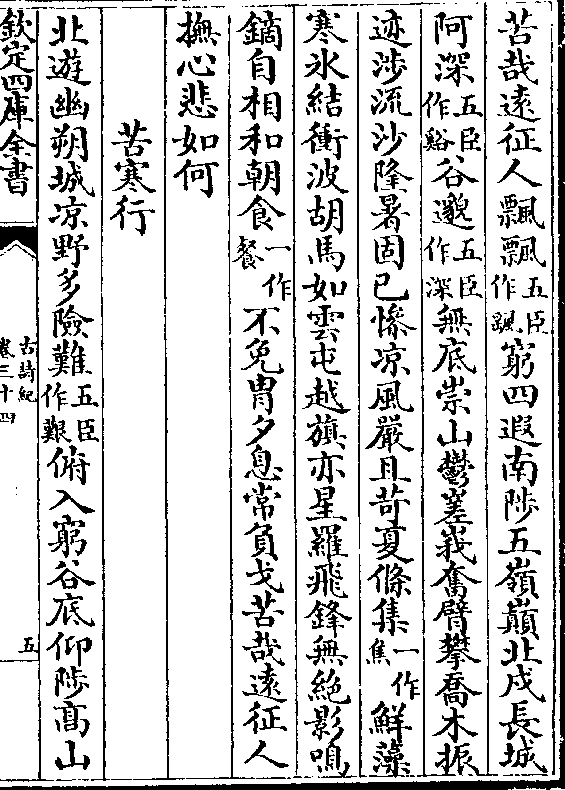 苦哉遠征人飄飄五臣作飖窮四遐南陟五嶺巔北戍長城
阿深五臣作谿谷邈五臣作深無底崇山鬱嵳峩奮臂攀喬木振
迹渉流沙隆暑固已慘凉風嚴且苛夏條集一作焦鮮藻
寒氷結衝波胡馬如雲屯越旗亦星羅飛鋒無絶影鳴
鏑自相和朝食一作餐不免胄夕息常負戈苦哉遠征人
撫心悲如何
苦寒行
北遊幽朔城凉野多險難五臣作艱俯入窮谷底仰陟髙山
欽定四庫全書
古詩紀
卷三十四
五